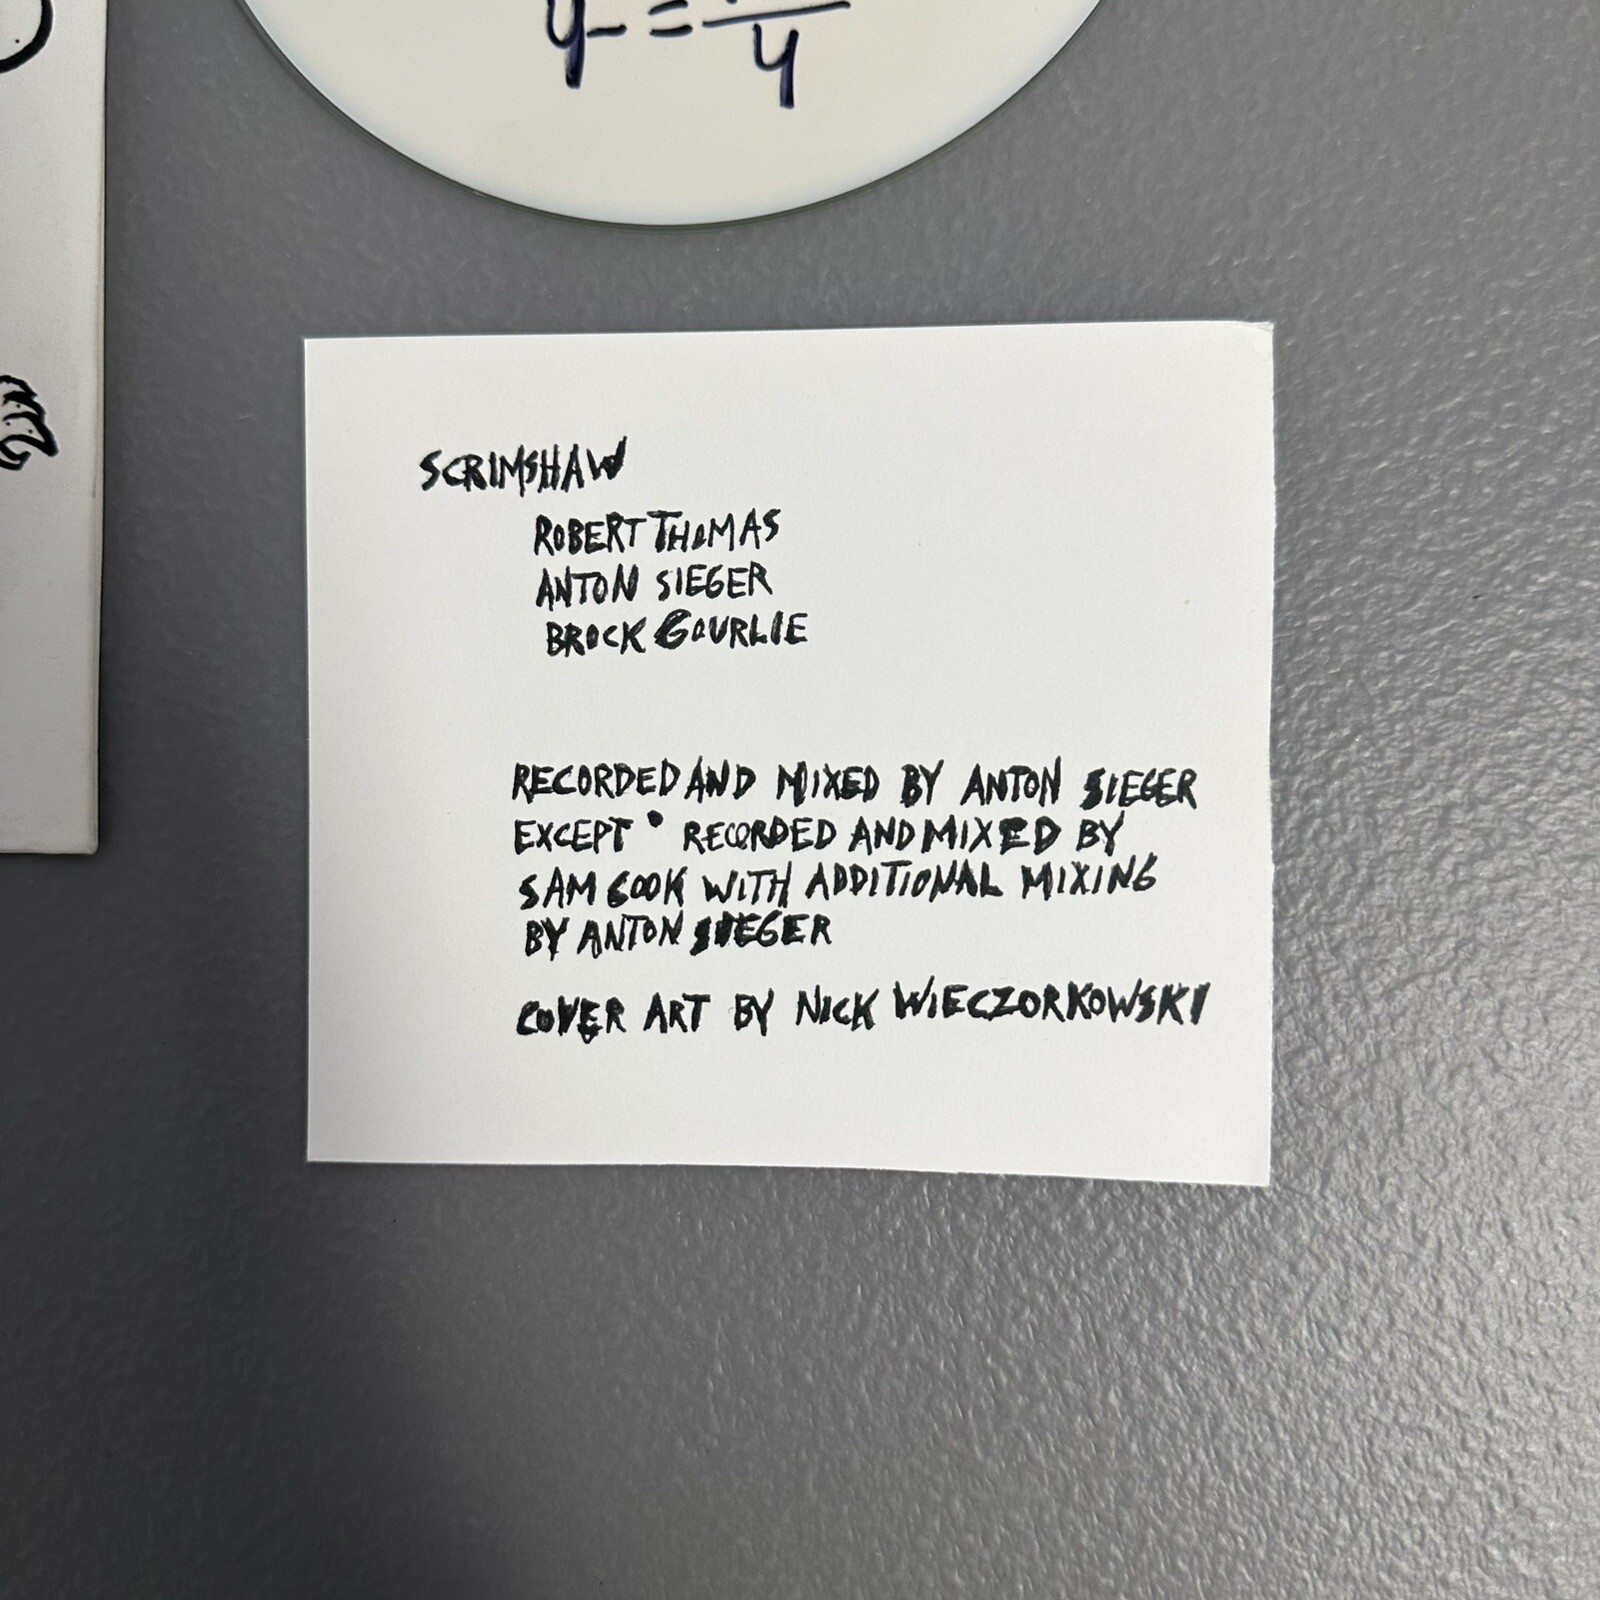 y = 
4
SCRIMSHAW
ROBERT THOMAS
ANTON SIEGER
BROCK GOURLIE
RECORDED AND MIXED BY ANTON SIEGER
EXCEPT • RECORDED AND MIXED BY
SAM COOK WITH ADDITIONAL MIXING
BY ANTON SIEGER
COVER ART BY NICK WIECZORKOWSKI